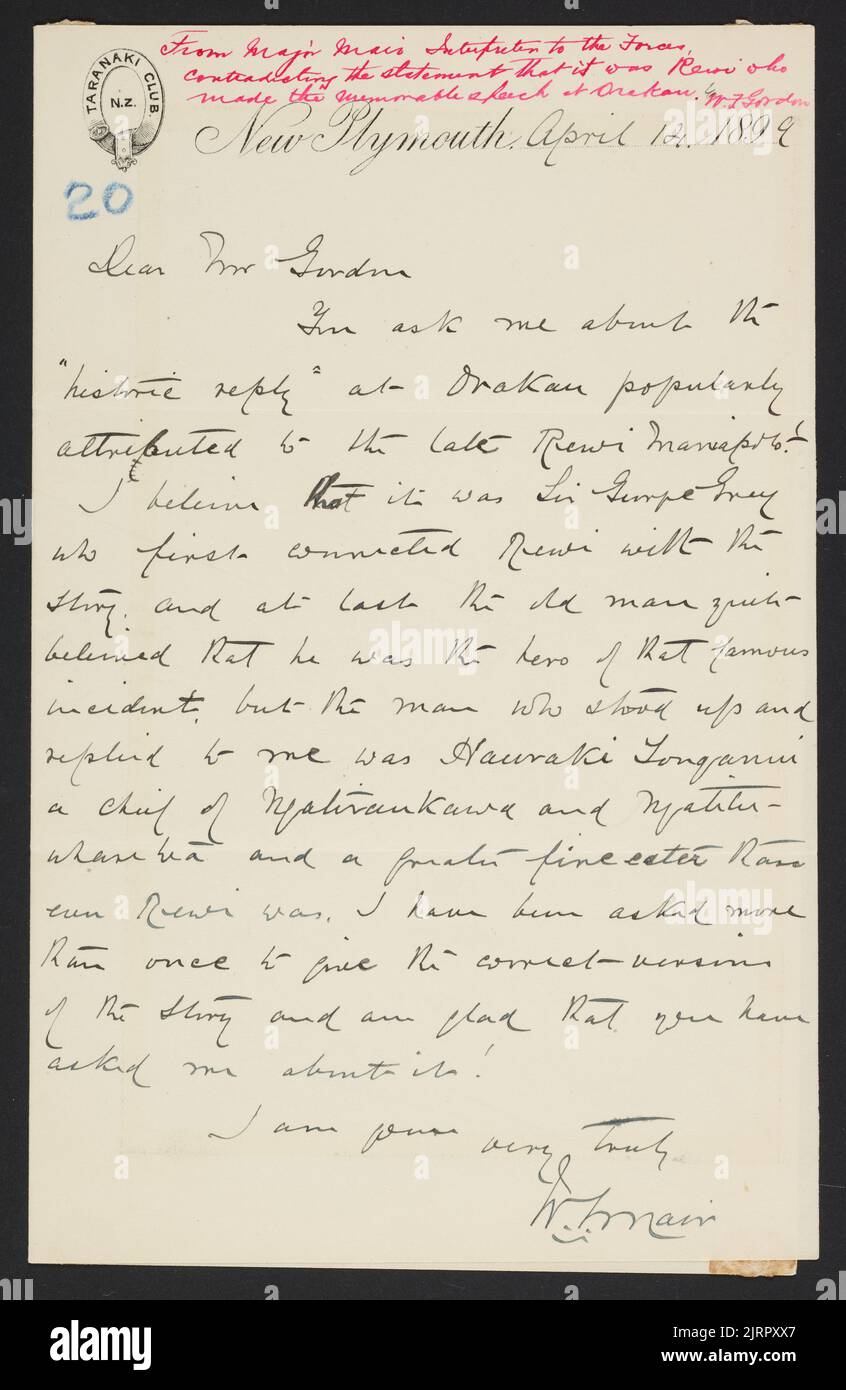 From Major Mair Interpreter to the Forces,
contradicting the statement that it was Rewi who
made the memorable speech at Orakau. W.F. Gordon
TARANAKI CLUB.
N.Z.
New Plymouth. April 12. 1899
20
Dear Mr Gordon
You ask me about the
"historic reply" at Orakau popularly
attributed to the late Rewi Maniapoto!
I believe that it was Sir George Grey
who first connected Rewi with the
story, and at last the old man quite
believed that he was the hero of that famous
incident, but the man who stood up and
replied to me was Hauraki Tonganui
a chief of Ngatiraukawa and Ngatitu-
wharetoa and a greater fire eater than
even Rewi was. I have been asked more
than once to give the correct version
of the story and am glad that you have
asked me about it!
I am yours very truly
W. G. Mair
alamy
Image ID: 2JRPXX7
www.alamy.com